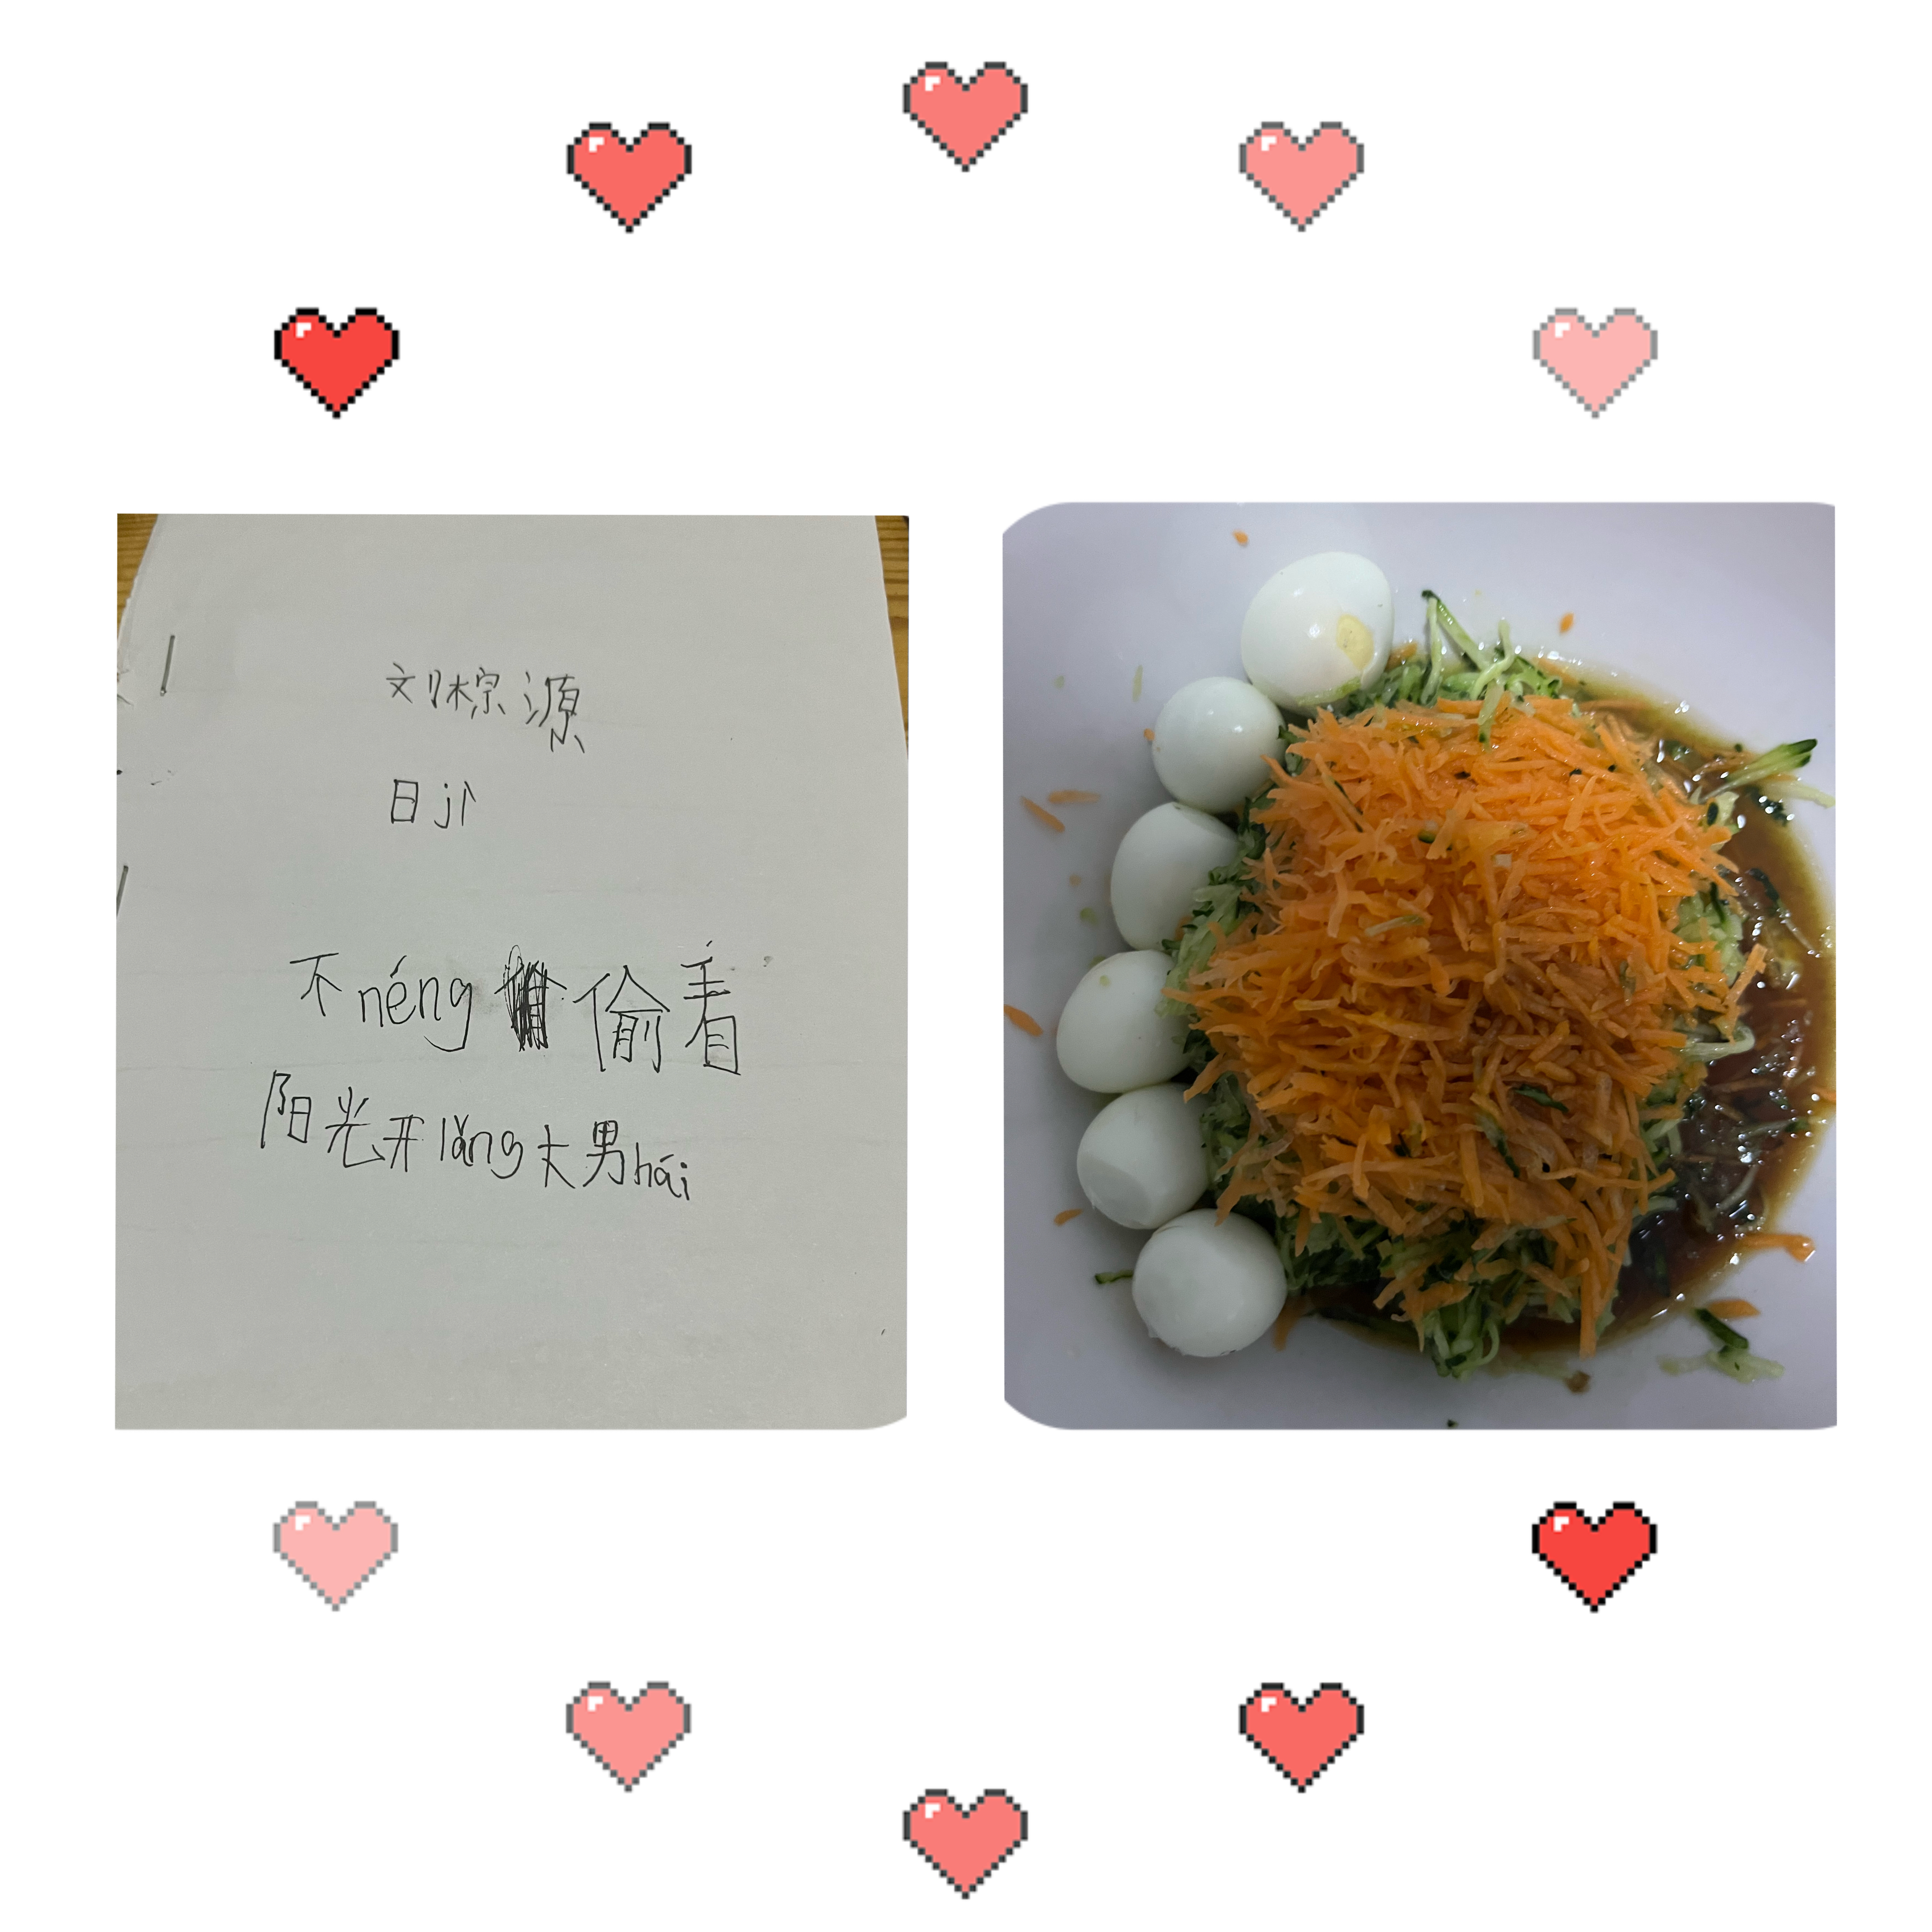 刘棕源
日jì
不néng 偷看
阳光开lǎng大男hái